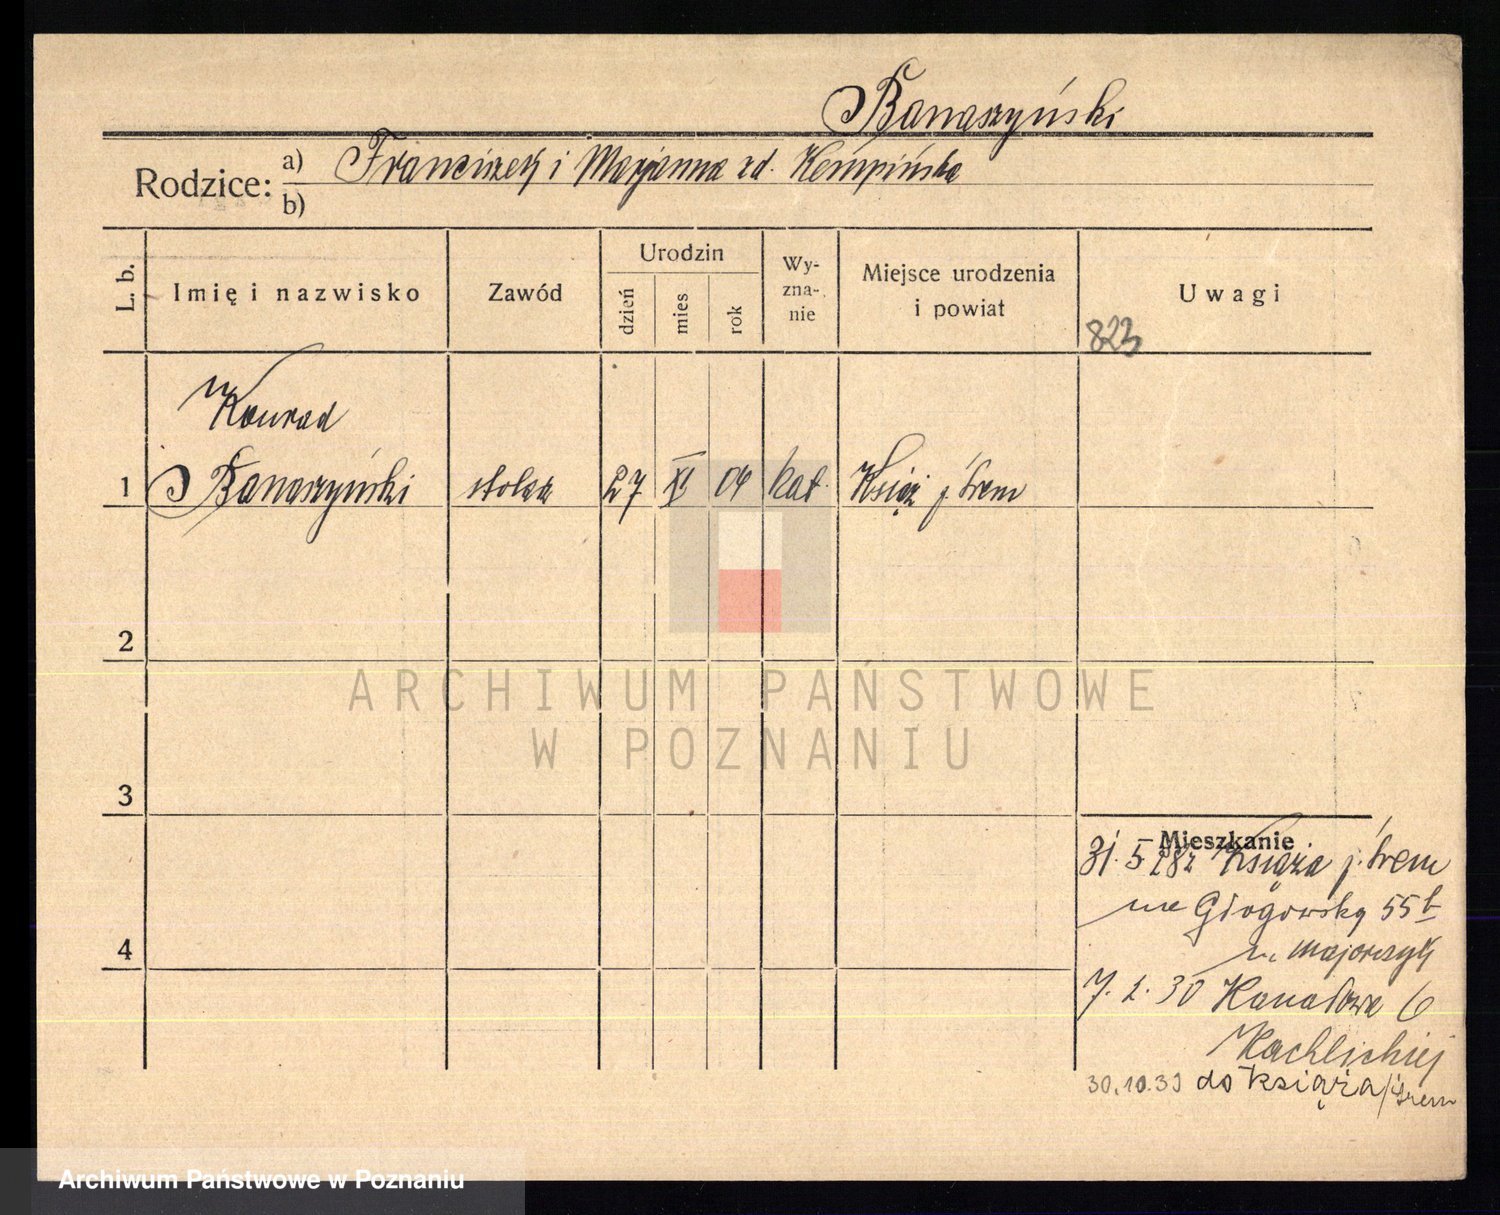 Banaszyński
Rodzice: a) Franciszek i Marjanna zd. Kempińska
b)
L. b. Imię i nazwisko Zawód Urodzin dzień mies rok Wy-zna-nie Miejsce urodzenia i powiat Uwagi
823
Konrad
1 Banaszyński 27 XI 04 kat. Książ p. Śrem
2
ARCHIWUM PAŃSTWOWE
W POZNANIU
3
Mieszkanie
31. 5 28 z Książa p. Śrem
Głogowska 55b
Majorczyk
7. 2. 30 Kanałowa 6
4
30.10.39 do Książa/Śrem
Archiwum Państwowe w Poznaniu